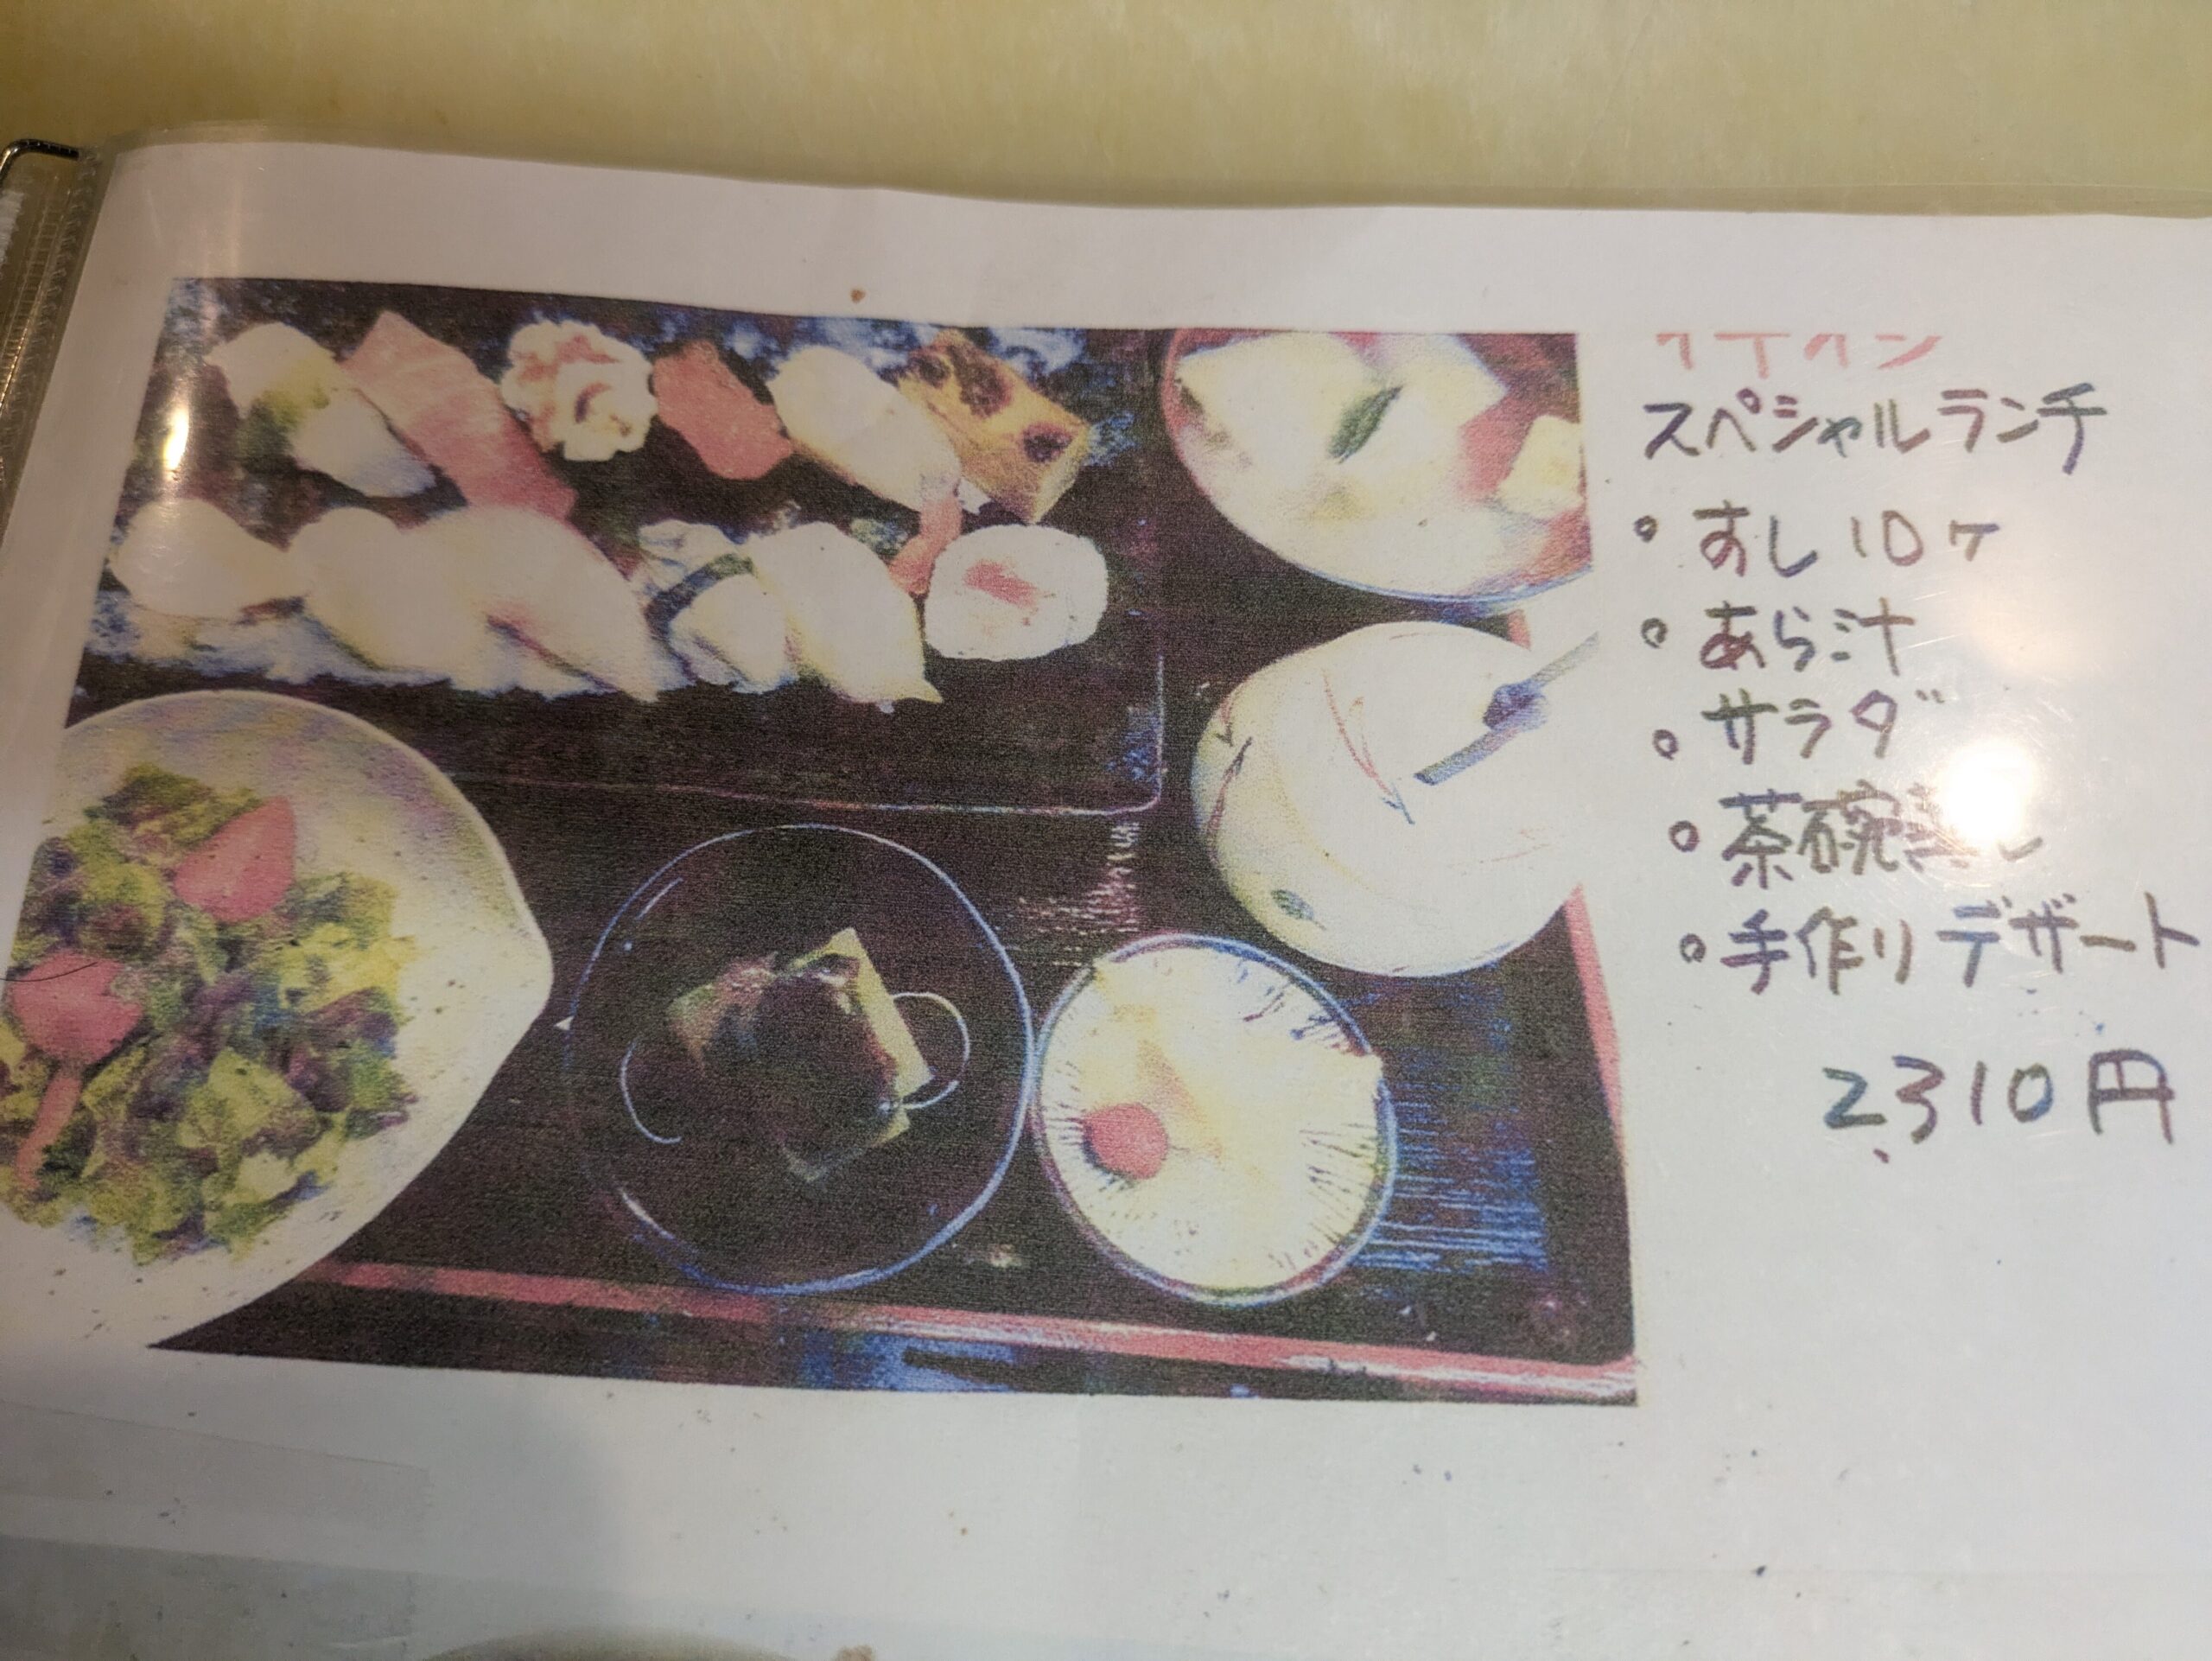 スペシャルランチ
• すし10ケ
• あら汁
• サラダ
• 茶碗蒸し
• 手作りデザート
2,310円